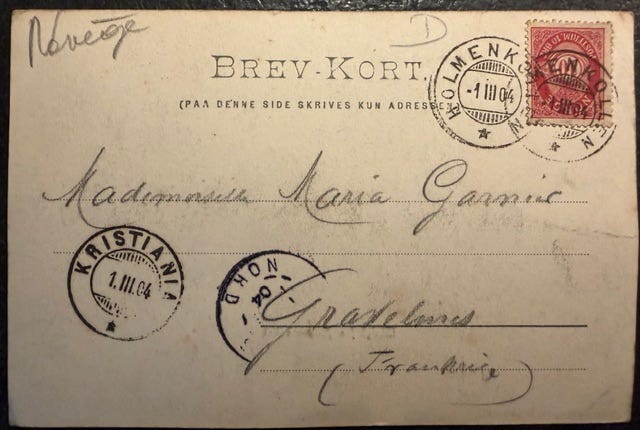 Norvège
D
BREV-KORT.
(PAA DENNE SIDE SKRIVES KUN ADRESSEN
HOLMENKOLLEN
-1 III 04
HOLMENKOLLEN
1 III 04
Mademoiselle Maria Garnier
KRISTIANIA
1.III.04
NORD
04
Gravelines
(Frankrig)